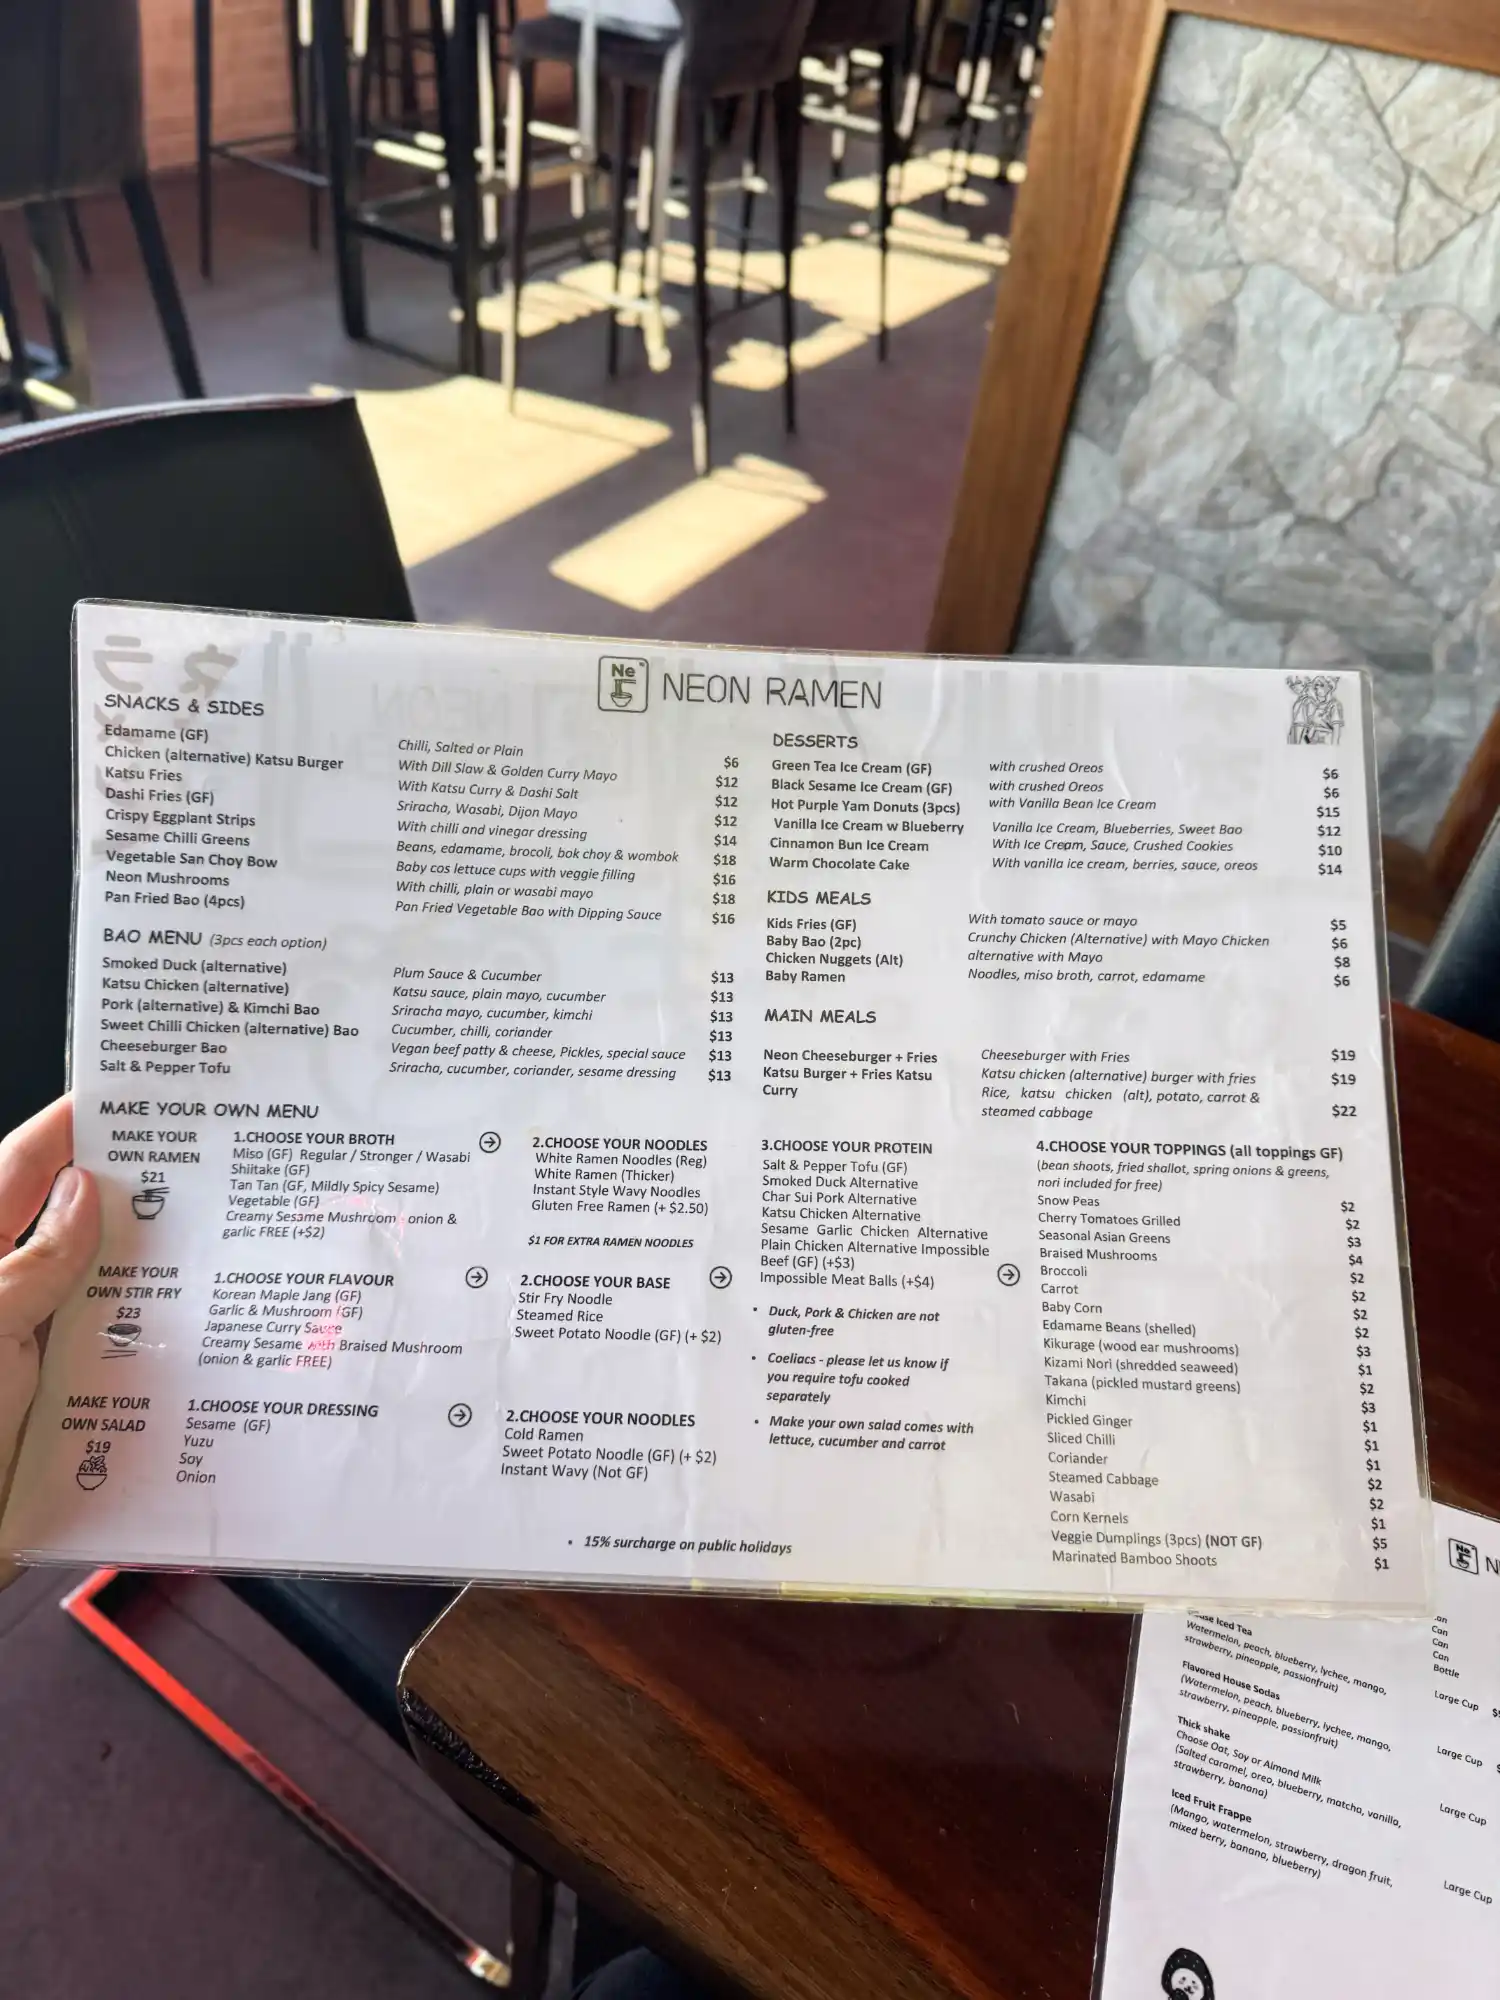 Ne
NEON RAMEN
SNACKS & SIDES
Edamame (GF) Chilli, Salted or Plain $6
Chicken (alternative) Katsu Burger With Dill Slaw & Golden Curry Mayo $12
Katsu Fries With Katsu Curry & Dashi Salt $12
Dashi Fries (GF) Sriracha, Wasabi, Dijon Mayo $12
Crispy Eggplant Strips With chilli and vinegar dressing $14
Sesame Chilli Greens Beans, edamame, brocoli, bok choy & wombok $18
Vegetable San Choy Bow Baby cos lettuce cups with veggie filling $16
Neon Mushrooms With chilli, plain or wasabi mayo $18
Pan Fried Bao (4pcs) Pan Fried Vegetable Bao with Dipping Sauce $16
BAO MENU (3pcs each option)
Smoked Duck (alternative) Plum Sauce & Cucumber $13
Katsu Chicken (alternative) Katsu sauce, plain mayo, cucumber $13
Pork (alternative) & Kimchi Bao Sriracha mayo, cucumber, kimchi $13
Sweet Chilli Chicken (alternative) Bao Cucumber, chilli, coriander $13
Cheeseburger Bao Vegan beef patty & cheese, Pickles, special sauce $13
Salt & Pepper Tofu Sriracha, cucumber, coriander, sesame dressing $13
DESSERTS
Green Tea Ice Cream (GF) with crushed Oreos $6
Black Sesame Ice Cream (GF) with crushed Oreos $6
Hot Purple Yam Donuts (3pcs) with Vanilla Bean Ice Cream $15
Vanilla Ice Cream w Blueberry Vanilla Ice Cream, Blueberries, Sweet Bao $12
Cinnamon Bun Ice Cream With Ice Cream, Sauce, Crushed Cookies $10
Warm Chocolate Cake With vanilla ice cream, berries, sauce, oreos $14
KIDS MEALS
Kids Fries (GF) With tomato sauce or mayo $5
Baby Bao (2pc) Crunchy Chicken (Alternative) with Mayo Chicken $6
Chicken Nuggets (Alt) alternative with Mayo $8
Baby Ramen Noodles, miso broth, carrot, edamame $6
MAIN MEALS
Neon Cheeseburger + Fries Cheeseburger with Fries $19
Katsu Burger + Fries Katsu Katsu chicken (alternative) burger with fries $19
Curry Rice, katsu chicken (alt), potato, carrot &
steamed cabbage $22
MAKE YOUR OWN MENU
MAKE YOUR
OWN RAMEN
$21
1.CHOOSE YOUR BROTH
Miso (GF) Regular / Stronger / Wasabi
Shiitake (GF)
Tan Tan (GF, Mildly Spicy Sesame)
Vegetable (GF)
Creamy Sesame Mushroom onion &
garlic FREE (+$2)
2.CHOOSE YOUR NOODLES
White Ramen Noodles (Reg)
White Ramen (Thicker)
Instant Style Wavy Noodles
Gluten Free Ramen (+ $2.50)
$1 FOR EXTRA RAMEN NOODLES
MAKE YOUR
OWN STIR FRY
$23
1.CHOOSE YOUR FLAVOUR
Korean Maple Jang (GF)
Garlic & Mushroom (GF)
Japanese Curry Sauce
Creamy Sesame with Braised Mushroom
(onion & garlic FREE)
2.CHOOSE YOUR BASE
Stir Fry Noodle
Steamed Rice
Sweet Potato Noodle (GF) (+ $2)
MAKE YOUR
OWN SALAD
$19
1.CHOOSE YOUR DRESSING
Sesame (GF)
Yuzu
Soy
Onion
2.CHOOSE YOUR NOODLES
Cold Ramen
Sweet Potato Noodle (GF) (+ $2)
Instant Wavy (Not GF)
3.CHOOSE YOUR PROTEIN
Salt & Pepper Tofu (GF)
Smoked Duck Alternative
Char Sui Pork Alternative
Katsu Chicken Alternative
Sesame Garlic Chicken Alternative
Plain Chicken Alternative Impossible
Beef (GF) (+$3)
Impossible Meat Balls (+$4)
• Duck, Pork & Chicken are not
gluten-free
• Coeliacs - please let us know if
you require tofu cooked
separately
• Make your own salad comes with
lettuce, cucumber and carrot
4.CHOOSE YOUR TOPPINGS (all toppings GF)
(bean shoots, fried shallot, spring onions & greens,
nori included for free)
Snow Peas $2
Cherry Tomatoes Grilled $2
Seasonal Asian Greens $3
Braised Mushrooms $4
Broccoli $2
Carrot $2
Baby Corn $2
Edamame Beans (shelled) $2
Kikurage (wood ear mushrooms) $3
Kizami Nori (shredded seaweed) $1
Takana (pickled mustard greens) $2
Kimchi $3
Pickled Ginger $1
Sliced Chilli $1
Coriander $1
Steamed Cabbage $2
Wasabi $2
Corn Kernels $1
Veggie Dumplings (3pcs) (NOT GF) $5
Marinated Bamboo Shoots $1
• 15% surcharge on public holidays
Ne
Can
Can
Can
Bottle
Iced Tea
Watermelon, peach, blueberry, lychee, mango,
strawberry, pineapple, passionfruit) Large Cup
Flavored House Sodas
(Watermelon, peach, blueberry, lychee, mango,
strawberry, pineapple, passionfruit) Large Cup
Thick shake
Choose Oat, Soy or Almond Milk
(Salted caramel, oreo, blueberry, matcha, vanilla,
strawberry, banana) Large Cup
Iced Fruit Frappe
(Mango, watermelon, strawberry, dragon fruit,
mixed berry, banana, blueberry) Large Cup